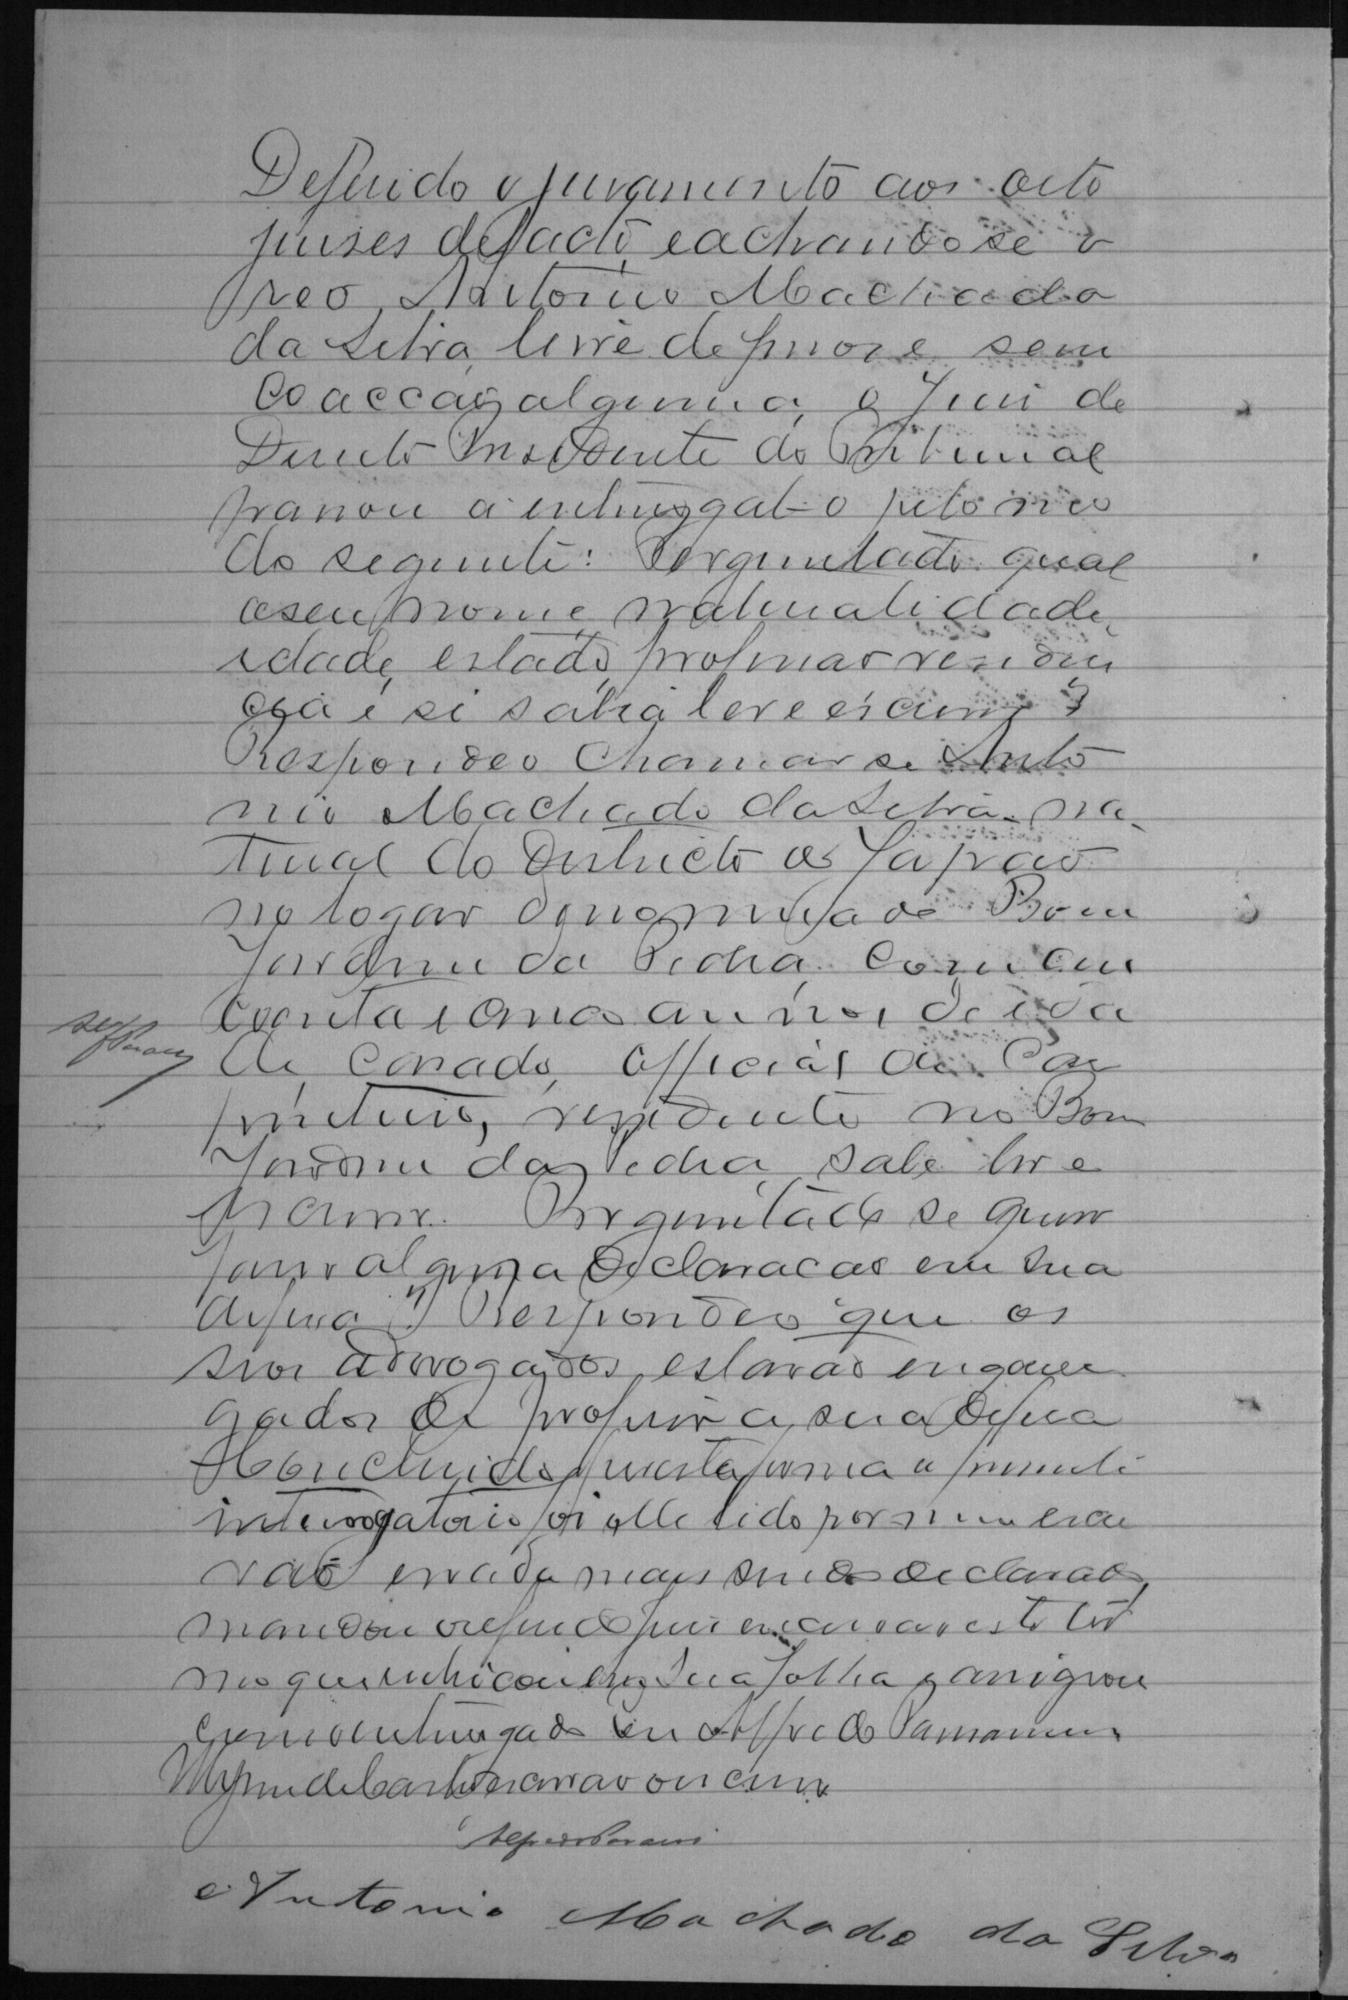 Deferido o juramento aos oito
juises de facto, e achando se o
reo, Antonio Machado
da Silva, livre de ferros e sem
coaccão alguma, o Juis de
Direito Presidente do Tribunal
passou a interrogal-o pelo mo
do seguinte: Perguntado qual
o seu nome, naturalidade,
idade, estado, profissão residen
cia e si sabia ler e escrever?
Respondeo chamar se Anto
nio Machado da Silva, na
tural do Districto de
no logar denominado Bom
Jardim da Pedra, com cin
coenta e annos de ida
de, casado, official de Car
pinteiro, residente no Bom
Jardim da Pedra, sabe ler e
escrever. Perguntado se quer
fazer alguma declaracão em sua
defesa? Respondeo que os
seos advogados estavão encarre
gados de proferir a sua defesa
Concluido por esta forma o presente
interrogatorio foi elle lido por mim escri
vão e nada mais sendo declarado,
mandou o referido juis encerrar este ter
mo que rubricou em sua folha e assignou
com o interrogado eu Alfredo
de Castro escrivão o escrevi
Antonio Machado da Silva